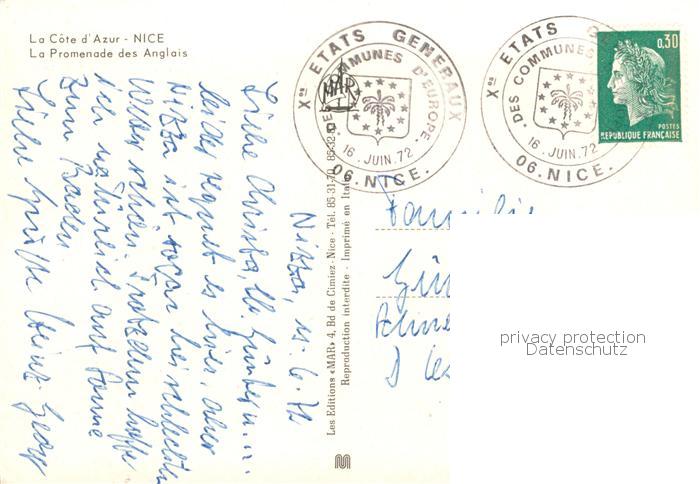 La Côte d'Azur - NICE
La Promenade des Anglais
Nizza, 15.6.72
Liebe Christa, lb. Günter u.
leider regnet es hier, aber
Nizza ist sogar bei schlechtem
Wetter schön. Trotzdem hoffe
ich natürlich auf Sonne
zum Baden
Liebe Grüße Heinz Georg
Les Editions «MAR» 4, Bd de Cimiez - Nice - Tél. 85.31-70
Reproduction interdite - Imprimé en Italie
MAR
Xes ETATS GENERAUX
DES COMMUNES D'EUROPE
16 JUIN.72
06.NICE.
Xes ETATS
DES COMMUNES
16 JUIN.72
06.NICE.
0,30
POSTES
REPUBLIQUE FRANÇAISE
Familie
Gün
D
privacy protection
Datenschutz